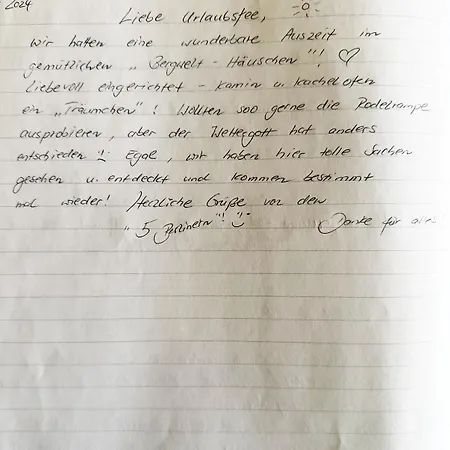 2024
Liebe Urlaubsfee,
wir hatten eine wunderbare Auszeit im
gemütlichen „Bergwelt - Häuschen"! ♡
Liebevoll eingerichtet - Kamin u. Kachelofen
ein „Träumchen"! Wollten soo gerne die Rodelrampe
ausprobieren, aber der Wettergott hat anders
entschieden !! Egal, wir haben hier tolle Sachen
gesehen u. entdeckt und kommen bestimmt
mal wieder! Herzliche Grüße von den
„5 Berlinern"! Danke für alles